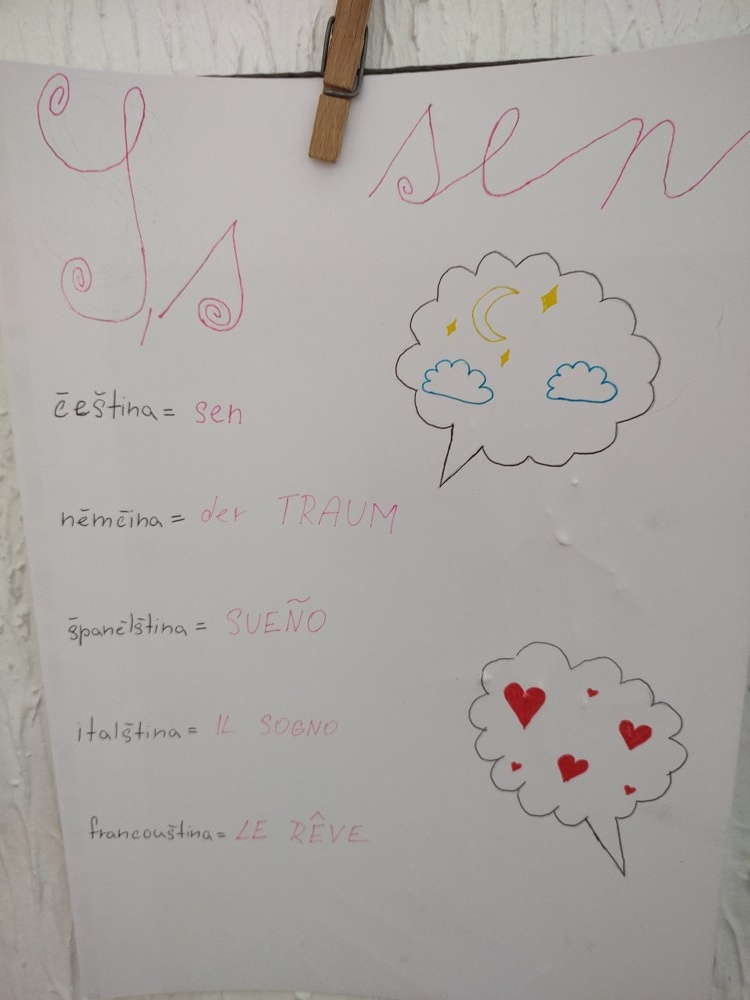 S, s sen
čeština = sen
němčina = der TRAUM
španělština = SUEÑO
italština = IL SOGNO
francouština = LE RÊVE